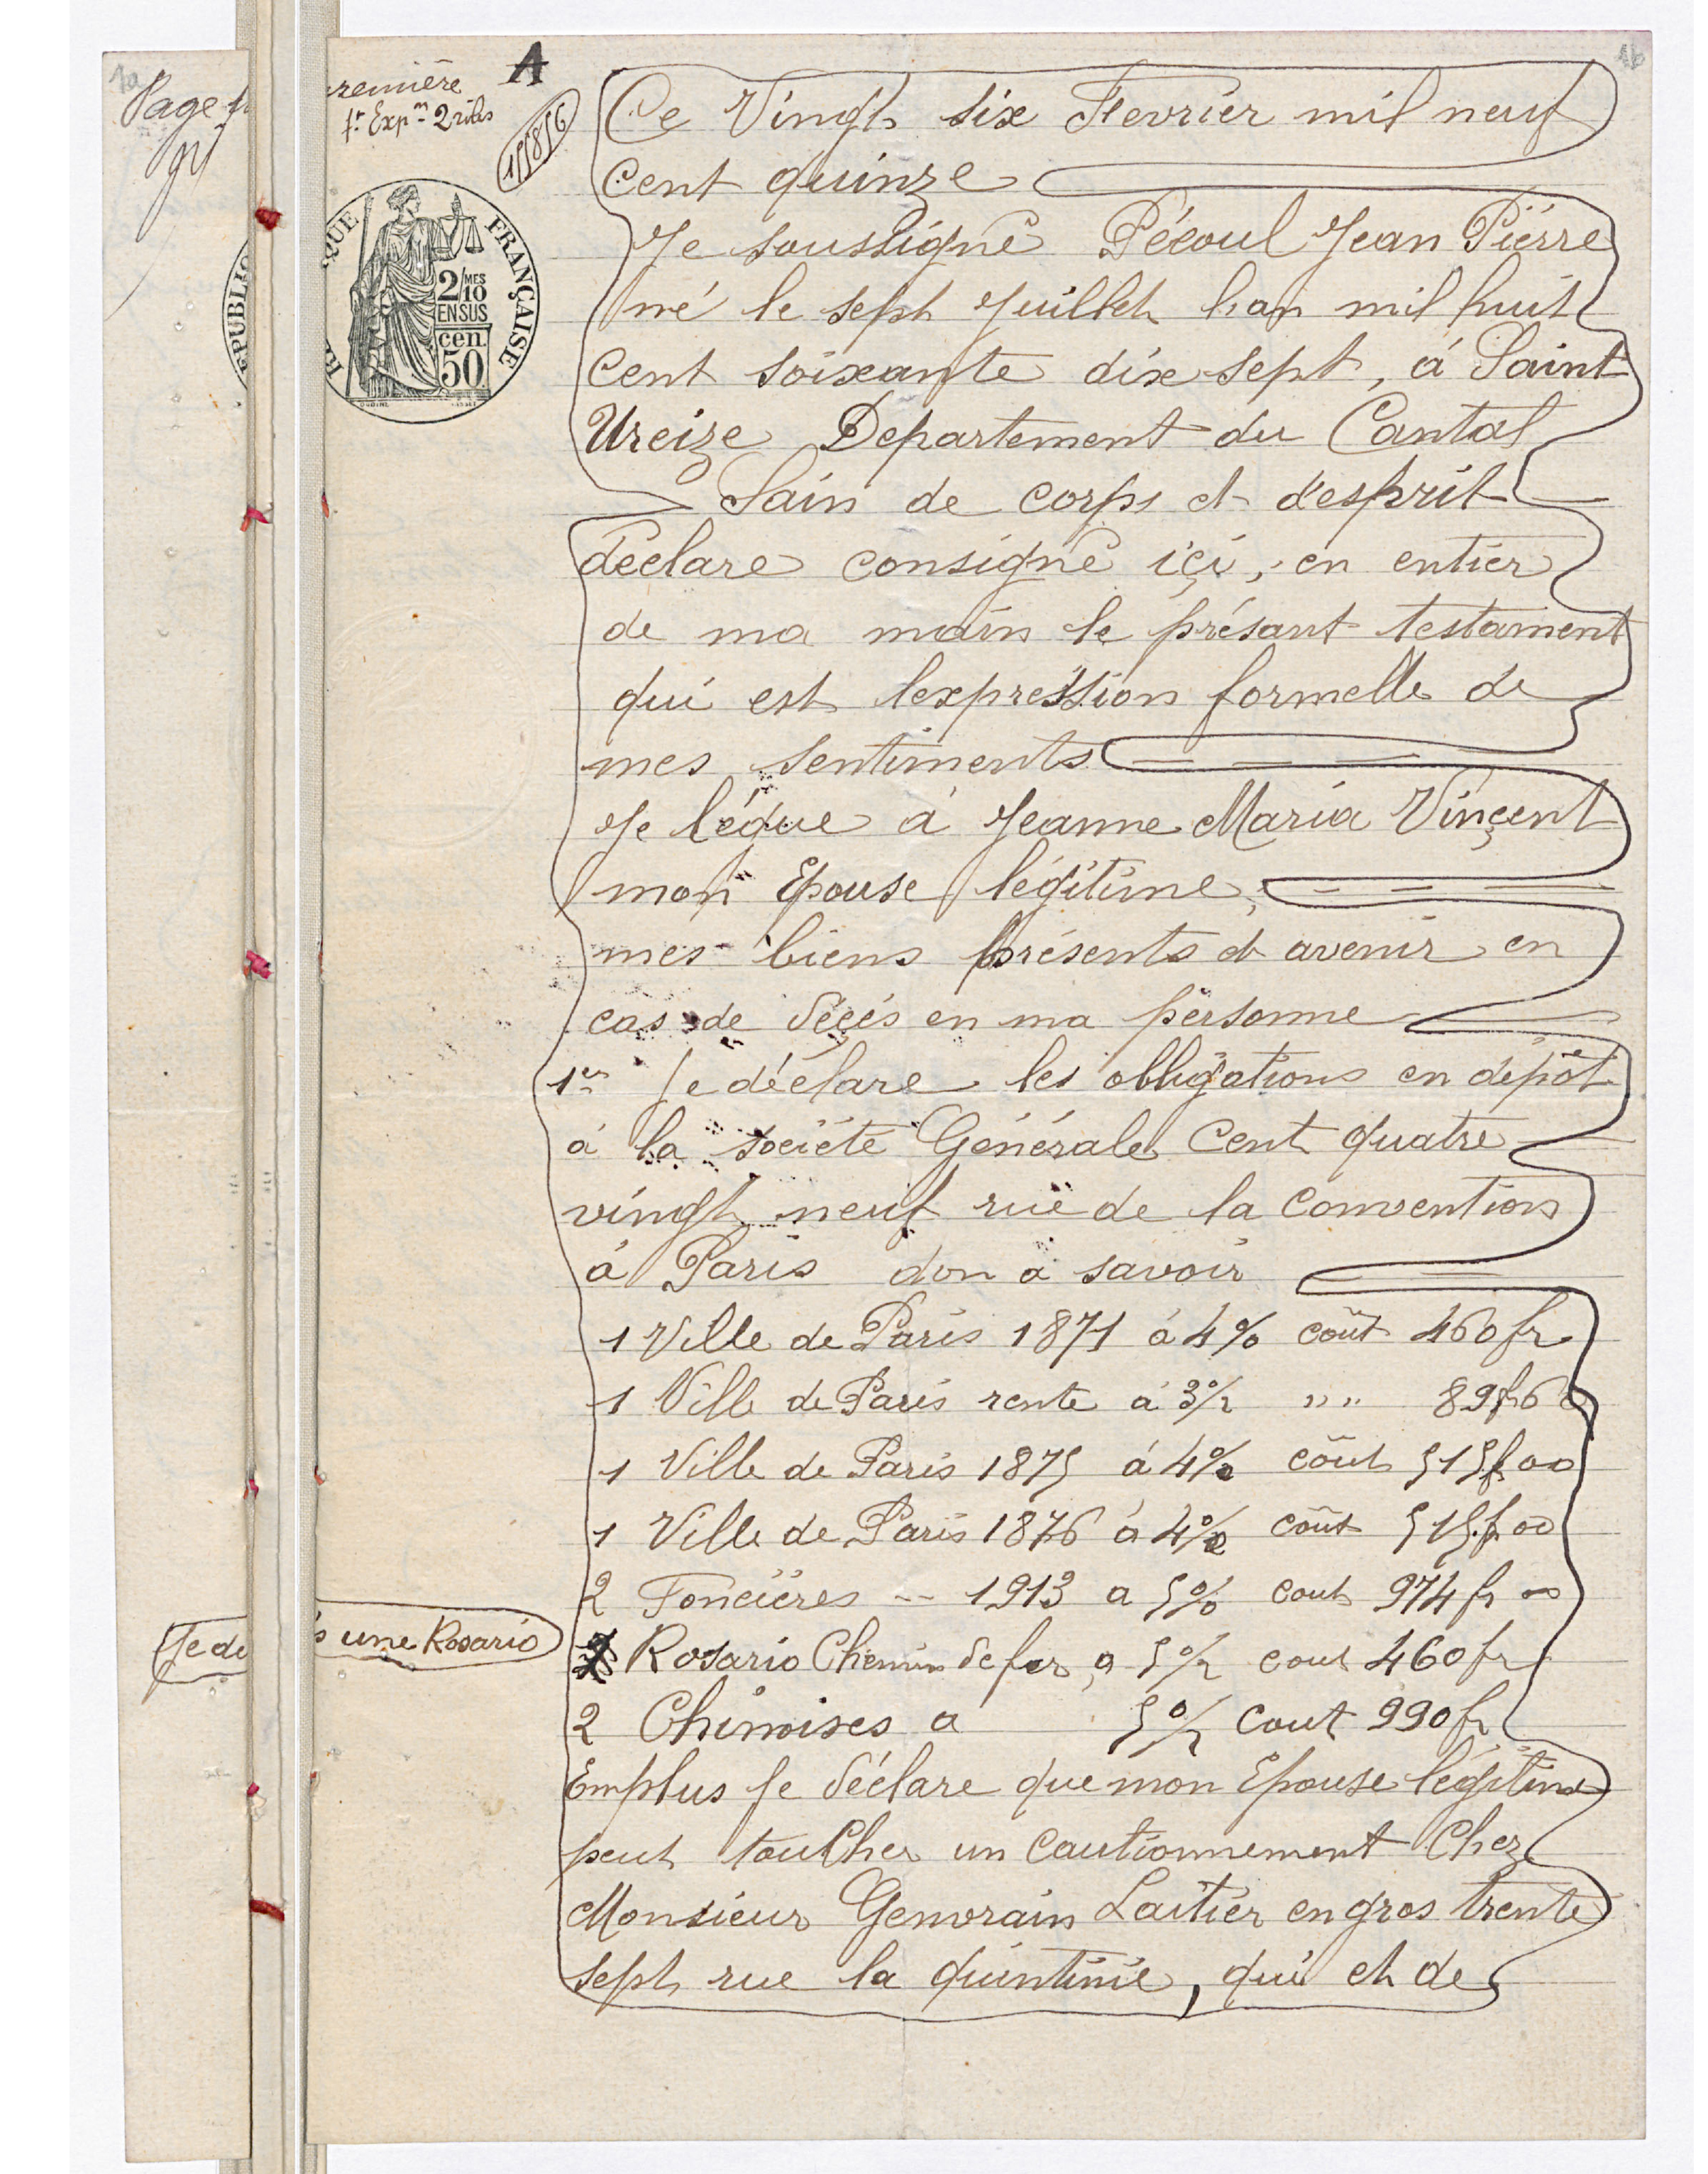 1a
Page p
première
fr Expon 2 rôles
A
1b
RÉPUBLIQUE FRANÇAISE
2/10 MES
EN SUS
cen.
50
OUDINÉ
Ce Vingt six Fevrier mil neuf
cent quinze
Je soussigné Pécoul Jean Pierre
né le sept Juillet lan mil huit
cent soixante dix sept, á Saint
Urcize Departement du Cantal
Sain de corps et d'esprit
déclare consigné içi, en entier
de ma main le présant testament
qui est lexpression formelle de
mes sentiments
Je légue á Jeanne Maria Vinçent
mon Epouse légitime,
mes biens présents et avenir en
cas de déçés en ma personne
1er Je déclare les obligations en dépôt
á la société Génerale Cent quatre
vingt neuf rue de la convention
á Paris don a savoir
1 Ville de Paris 1871 á 4% coût 460 fr
1 Ville de Paris rente á 3% " " 89 fr 60
1 Ville de Paris 1875 á 4% coût 515 f 00
1 Ville de Paris 1876 á 4% coût 515 f 00
2 Foncières -- 1913 a 5% cout 974 fr 00
Je dis une Rosario
Rosario Chemin de fer, a 5% cout 460 fr
2 Chinoises a 5% cout 990 fr
Emplus Je déclare que mon Epouse légitime
peut toucher un Cautionnement Chez
Monsieur Genvrain Laitier en gros trente
sept rue la quintinie, qui et de